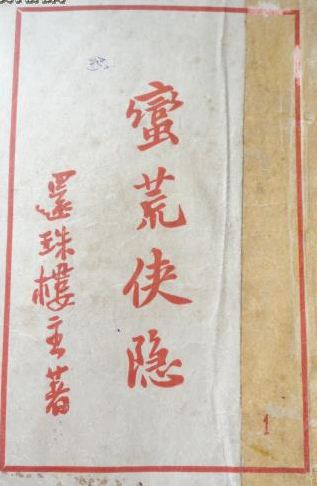 蛮荒侠隐
還珠樓主著
1